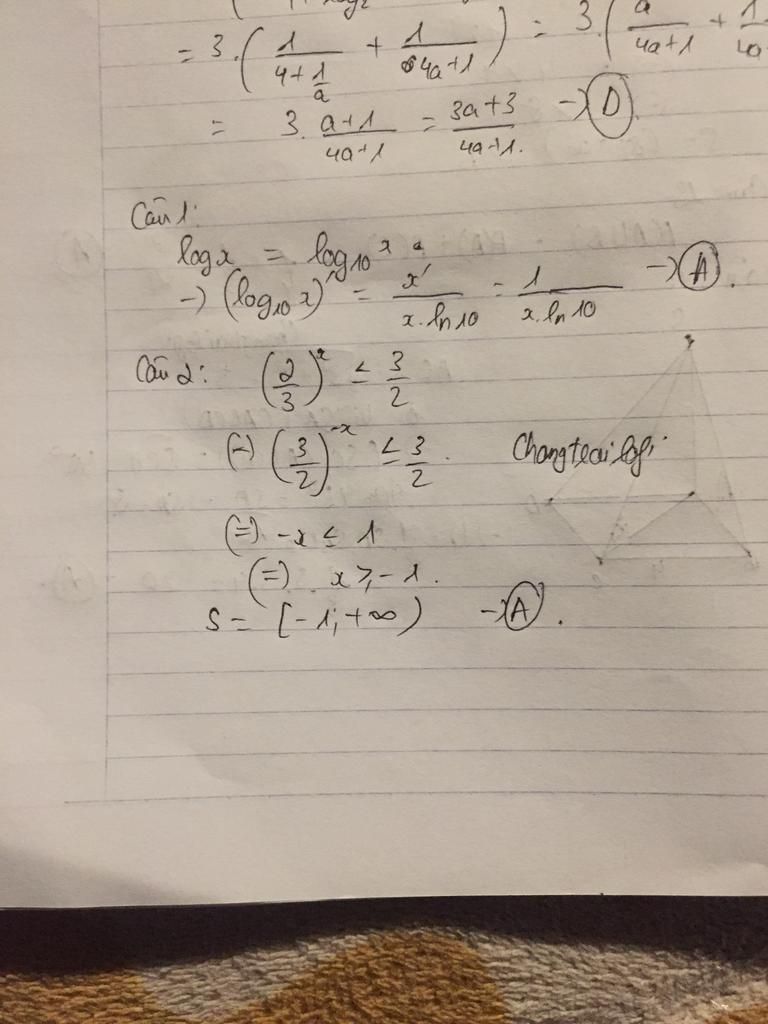 = 3.(1/(4+1/a) + 1/(4a+1)) = 3.(a/(4a+1) + 1/4a
= 3.(a+1)/(4a+1) = (3a+3)/(4a+1). → D
Câu 1:
log x = log₁₀ x
→ (log₁₀ x)' = x'/(x.ln 10) = 1/(x.ln 10) → A.
Câu 2: (2/3)^x ≤ 3/2
(=) (3/2)^-x ≤ 3/2.
(=) -x ≤ 1
(=) x ≥ -1.
S = [-1; +∞) → A.